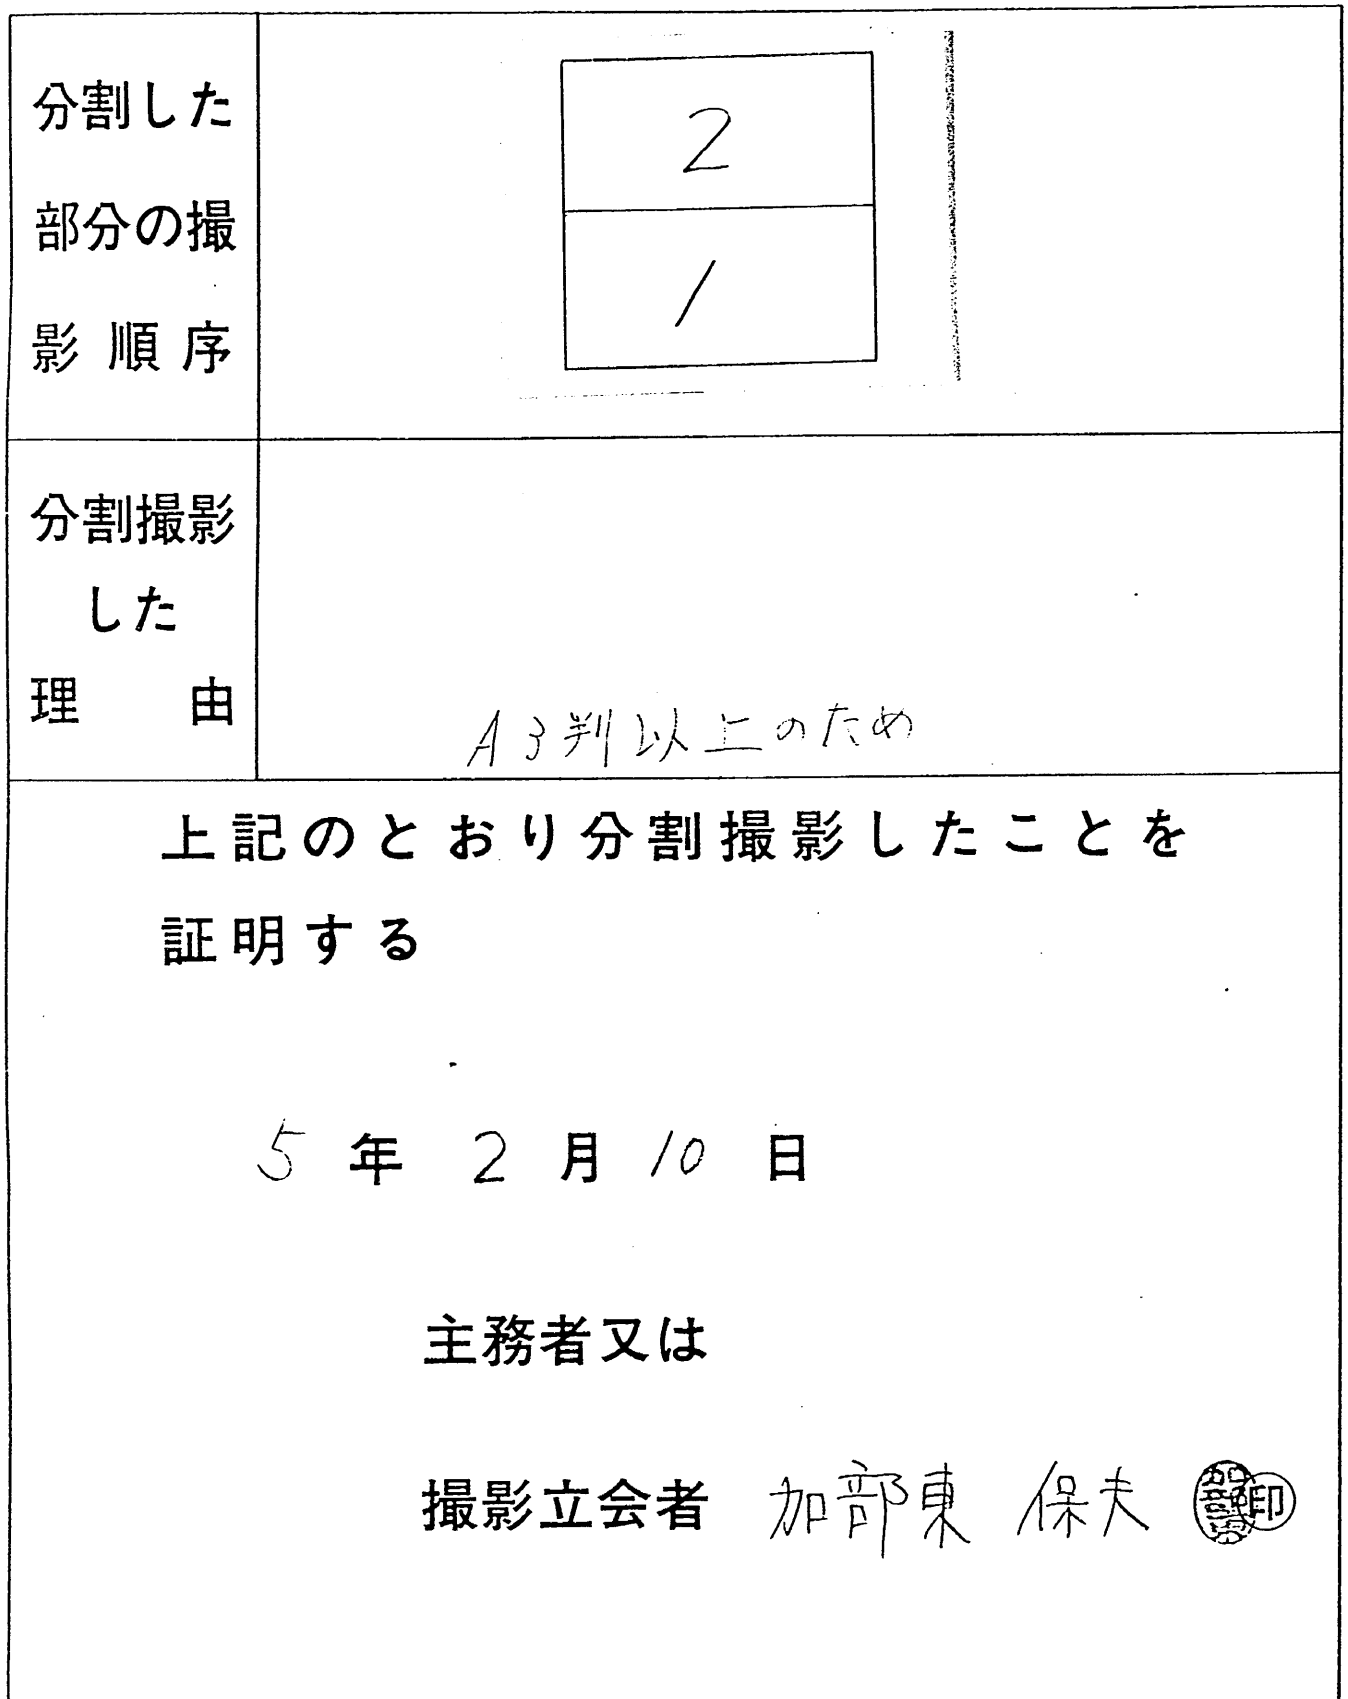 分割した
部分の撮
影順序
2
1
分割撮影
した
理由
A3判以上のため
上記のとおり分割撮影したことを
証明する
5年2月10日
主務者又は
撮影立会者 加部東 保夫 印